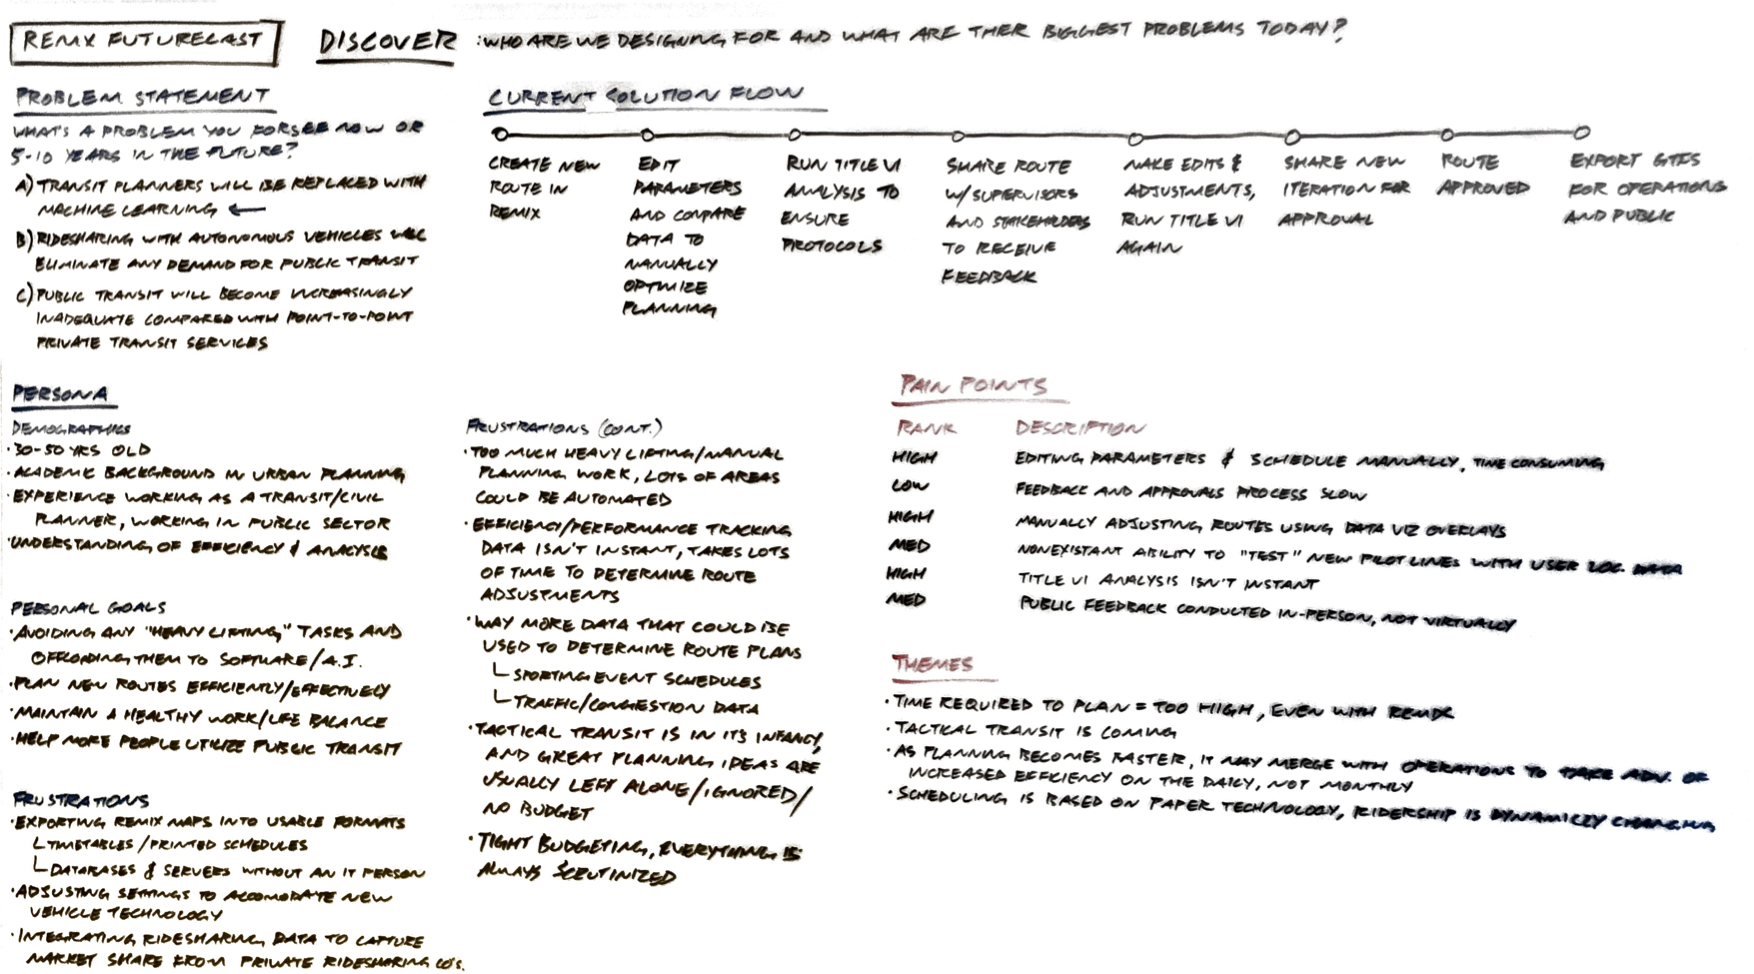 REMIX FUTURECAST
DISCOVER : WHO ARE WE DESIGNING FOR AND WHAT ARE THER BIGGEST PROBLEMS TODAY?
PROBLEM STATEMENT
WHAT'S A PROBLEM YOU FORSEE NOW OR
5-10 YEARS IN THE FUTURE?
A) TRANSIT PLANNERS WILL BE REPLACED WITH
MACHINE LEARNING ←
B) RIDESHARING WITH AUTONOMOUS VEHICLES WILL
ELIMINATE ANY DEMAND FOR PUBLIC TRANSIT
C) PUBLIC TRANSIT WILL BECOME INCREASINGLY
INADEQUATE COMPARED WITH POINT-TO-POINT
PRIVATE TRANSIT SERVICES
CURRENT SOLUTION FLOW
CREATE NEW
ROUTE IN
REMIX
EDIT
PARAMETERS
AND COMPARE
DATA TO
MANUALLY
OPTIMIZE
PLANNING
RUN TITLE VI
ANALYSIS TO
ENSURE
PROTOCOLS
SHARE ROUTE
W/SUPERVISORS
AND STAKEHOLDERS
TO RECEIVE
FEEDBACK
MAKE EDITS &
ADJUSTMENTS,
RUN TITLE VI
AGAIN
SHARE NEW
ITERATION FOR
APPROVAL
ROUTE
APPROVED
EXPORT GTFS
FOR OPERATIONS
AND PUBLIC
PERSONA
DEMOGRAPHICS
· 30-50 YRS OLD
· ACADEMIC BACKGROUND IN URBAN PLANNING
· EXPERIENCE WORKING AS A TRANSIT/CIVIL
PLANNER, WORKING IN PUBLIC SECTOR
· UNDERSTANDING OF EFFICIENCY & ANALYSIS
PERSONAL GOALS
· AVOIDING ANY "HEAVY LIFTING" TASKS AND
OFFLOADING THEM TO SOFTWARE/A.I.
· PLAN NEW ROUTES EFFICIENTLY/EFFECTIVELY
· MAINTAIN A HEALTHY WORK/LIFE BALANCE
· HELP MORE PEOPLE UTILIZE PUBLIC TRANSIT
FRUSTRATIONS
· EXPORTING REMIX MAPS INTO USABLE FORMATS
└ TIMETABLES/PRINTED SCHEDULES
└ DATABASES & SERVERS WITHOUT AN IT PERSON
· ADJUSTING SETTINGS TO ACCOMODATE NEW
VEHICLE TECHNOLOGY
· INTEGRATING RIDESHARING DATA TO CAPTURE
MARKET SHARE FROM PRIVATE RIDESHARING CO'S.
FRUSTRATIONS (CONT.)
· TOO MUCH HEAVY LIFTING/MANUAL
PLANNING WORK, LOTS OF AREAS
COULD BE AUTOMATED
· EFFICIENCY/PERFORMANCE TRACKING
DATA ISN'T INSTANT, TAKES LOTS
OF TIME TO DETERMINE ROUTE
ADJUSTMENTS
· WAY MORE DATA THAT COULD BE
USED TO DETERMINE ROUTE PLANS
└ SPORTING EVENT SCHEDULES
└ TRAFFIC/CONGESTION DATA
· TACTICAL TRANSIT IS IN ITS INFANCY,
AND GREAT PLANNING IDEAS ARE
USUALLY LEFT ALONE/IGNORED/
NO BUDGET
· TIGHT BUDGETING, EVERYTHING IS
ALWAYS SCRUTINIZED
PAIN POINTS
RANK DESCRIPTION
HIGH EDITING PARAMETERS & SCHEDULE MANUALLY, TIME CONSUMING
LOW FEEDBACK AND APPROVALS PROCESS SLOW
HIGH MANUALLY ADJUSTING ROUTES USING DATA VIZ OVERLAYS
MED NONEXISTANT ABILITY TO "TEST" NEW PILOT LINES WITH USER LOC. DATA
HIGH TITLE VI ANALYSIS ISN'T INSTANT
MED PUBLIC FEEDBACK CONDUCTED IN-PERSON, NOT VIRTUALLY
THEMES
· TIME REQUIRED TO PLAN = TOO HIGH, EVEN WITH REMIX
· TACTICAL TRANSIT IS COMING
· AS PLANNING BECOMES FASTER, IT MAY MERGE WITH OPERATIONS TO TAKE ADV. OF
INCREASED EFFICIENCY ON THE DAILY, NOT MONTHLY
· SCHEDULING IS BASED ON PAPER TECHNOLOGY, RIDERSHIP IS DYNAMICLY CHANGING